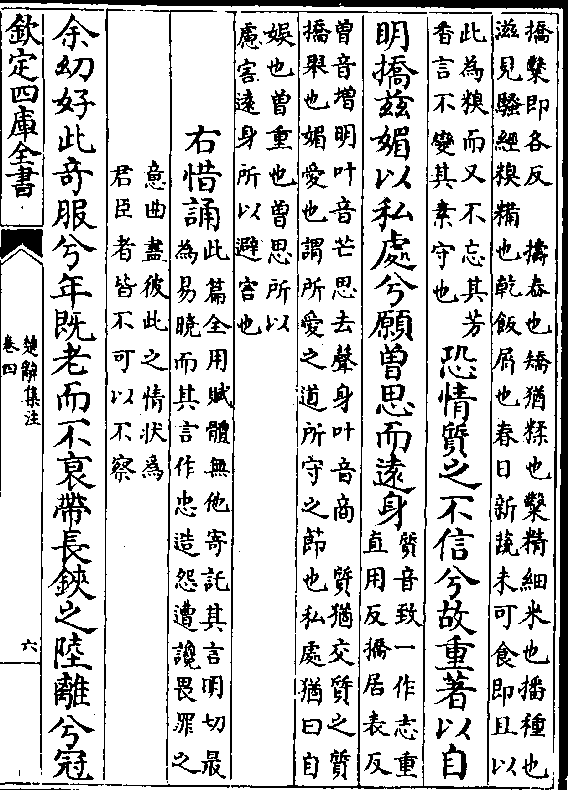 擣糳即各反　擣舂也矯猶糅也糳精細米也播種也
滋見騷經糗糒也乾飯屑也春日新蔬未可食即且以
此為糗而又不忘其芳
香言不變其素守也
恐情質之不信兮故重著以自
明撟兹媚以私處兮願曽思而遠身
質音致一作志重
直用反撟居表反
曽音増明叶音芒思去聲身叶音商　質猶交質之質
撟舉也媚愛也謂所愛之道所守之節也私處猶曰自
娛也曽重也曽思所以
慮害遠身所以避害也
右惜誦
此篇全用賦體無他寄託其言明切最
為易曉而其言作忠造怨遭讒畏罪之
意曲盡彼此之情狀為
君臣者皆不可以不察
余幼好此奇服兮年既老而不衰帶長鋏之陸離兮冠
欽定四庫全書
楚辭集注
卷四
六